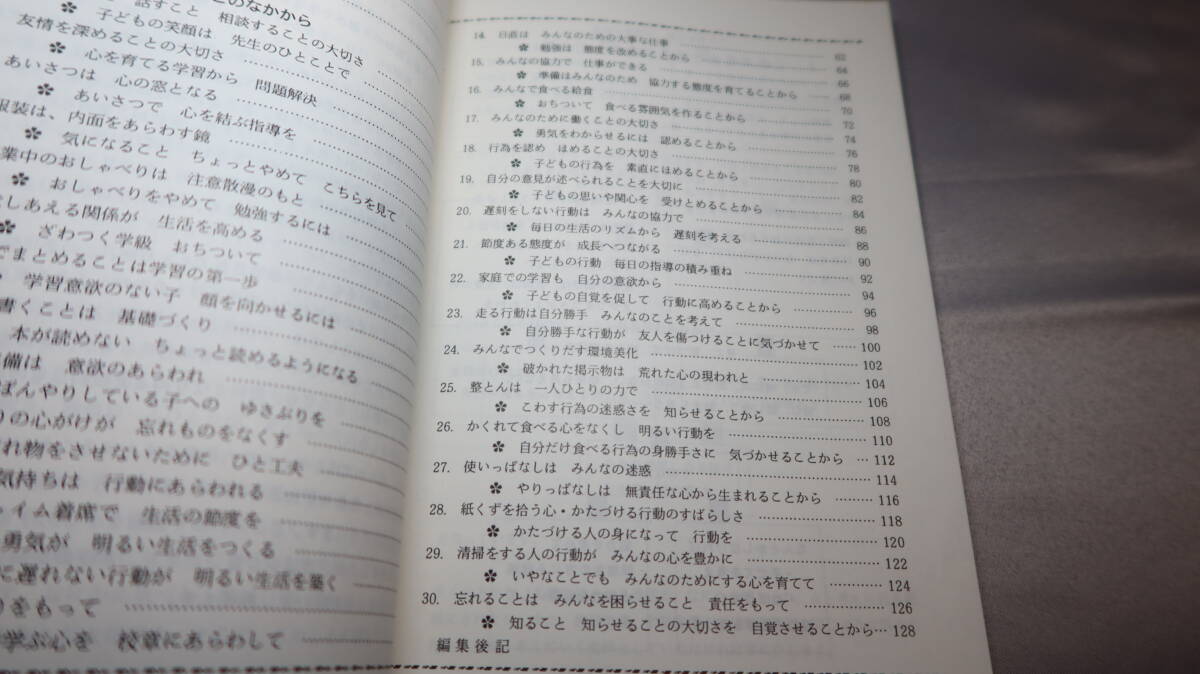 のなかから
✿ 話すこと 相談することの大切さ
✿ 子どもの笑顔は 先生のひとことで
友情を深めることの大切さ
✿ 心を育てる学習から 問題解決
あいさつは 心の窓となる
✿ あいさつで 心を結ぶ指導を
服装は、内面をあらわす鏡
✿ 気になること ちょっとやめて こちらを見て
業中のおしゃべりは 注意散漫のもと
✿ おしゃべりをやめて 勉強するには
しあえる関係が 生活を高める
✿ ざわつく学級 おちついて
でまとめることは学習の第一歩
学習意欲のない子 顔を向かせるには
書くことは 基礎づくり
本が読めない ちょっと読めるようになる
備は 意欲のあらわれ
ぼんやりしている子への ゆさぶりを
りの心がけが 忘れものをなくす
れ物をさせないために ひと工夫
気持ちは 行動にあらわれる
イム着席で 生活の節度を
勇気が 明るい生活をつくる
に遅れない行動が 明るい生活を築く
りをもって
学ぶ心を 校章にあらわして
14. 日直は みんなのための大事な仕事 62
✿ 勉強は 態度を改めることから 64
15. みんなの協力で 仕事ができる 66
✿ 準備はみんなのため 協力する態度を育てることから 68
16. みんなで食べる給食 70
✿ おちついて 食べる雰囲気を作ることから 72
17. みんなのために働くことの大切さ 74
✿ 勇気をわからせるには 認めることから 76
18. 行為を認め ほめることの大切さ 78
✿ 子どもの行為を 素直にほめることから 80
19. 自分の意見が述べられることを大切に 82
✿ 子どもの思いや関心を 受けとめることから 84
20. 遅刻をしない行動は みんなの協力で 86
✿ 毎日の生活のリズムから 遅刻を考える 88
21. 節度ある態度が 成長へつながる 90
✿ 子どもの行動 毎日の指導の積み重ね 92
22. 家庭での学習も 自分の意欲から 94
✿ 子どもの自覚を促して 行動に高めることから 96
23. 走る行動は自分勝手 みんなのことを考えて 98
✿ 自分勝手な行動が 友人を傷つけることに気づかせて 100
24. みんなでつくりだす環境美化 102
✿ 破かれた掲示物は 荒れた心の現われと 104
25. 整とんは 一人ひとりの力で 106
✿ こわす行為の迷惑さを 知らせることから 108
26. かくれて食べる心をなくし 明るい行動を 110
✿ 自分だけ食べる行為の身勝手さに 気づかせることから 112
27. 使いっぱなしは みんなの迷惑 114
✿ やりっぱなしは 無責任な心から生まれることから 116
28. 紙くずを拾う心・かたづける行動のすばらしさ 118
✿ かたづける人の身になって 行動を 120
29. 清掃をする人の行動が みんなの心を豊かに 122
✿ いやなことでも みんなのためにする心を育てて 124
30. 忘れることは みんなを困らせること 責任をもって 126
✿ 知ること 知らせることの大切さを 自覚させることから 128
編集後記